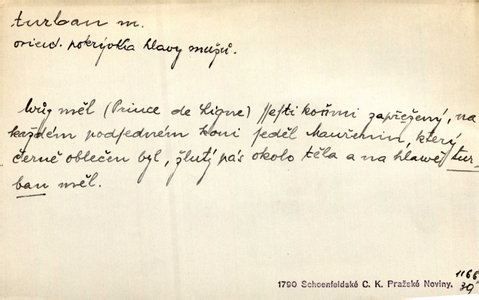 turban m.
orient. pokrývka hlavy mužů.
Wůz měl (Prince de Ligne) ssesti koňmi zapřežený, na
každém podsedním koni seděl Mauřenin, který
černě oblečen byl, žlutý pás okolo těla a na hlawě tur-
ban měl.
1790 Schoenfeldské C. K. Pražské Noviny.
1166
39